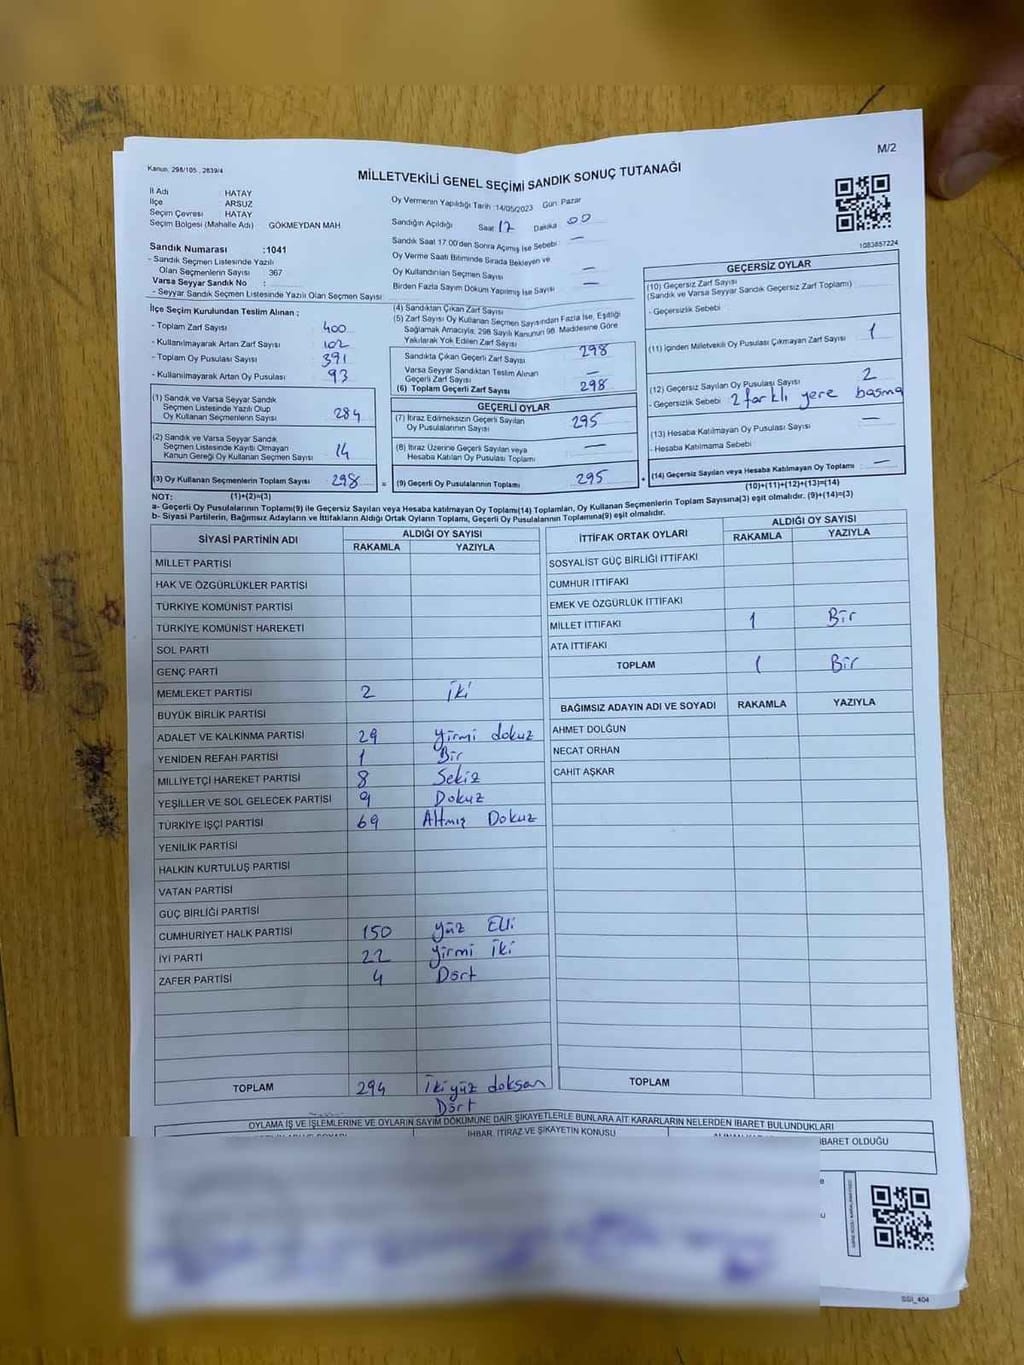 M/2
Kanun: 298/105 , 2839/4
MİLLETVEKİLİ GENEL SEÇİMİ SANDIK SONUÇ TUTANAĞI
İl Adı HATAY
İlçe ARSUZ
Seçim Çevresi HATAY
Seçim Bölgesi (Mahalle Adı) GÖKMEYDAN MAH
Sandık Numarası :1041
- Sandık Seçmen Listesinde Yazılı
Olan Seçmenlerin Sayısı 367
Varsa Seyyar Sandık No :
- Seyyar Sandık Seçmen Listesinde Yazılı Olan Seçmen Sayısı
Oy Vermenin Yapıldığı Tarih :14/05/2023 Gün: Pazar
Sandığın Açıldığı Saat 17 Dakika 00
Sandık Saat 17.00'den Sonra Açılmış İse Sebebi: —
Oy Verme Saati Bitiminde Sırada Bekleyen ve
Oy Kullandırılan Seçmen Sayısı —
Birden Fazla Sayım Döküm Yapılmış İse Sayısı —
1083857224
İlçe Seçim Kurulundan Teslim Alınan ;
- Toplam Zarf Sayısı 400
- Kullanılmayarak Artan Zarf Sayısı 102
- Toplam Oy Pusulası Sayısı 391
- Kullanılmayarak Artan Oy Pusulası 93
(1) Sandık ve Varsa Seyyar Sandık
Seçmen Listesinde Yazılı Olup
Oy Kullanan Seçmenlerin Sayısı 284
(2) Sandık ve Varsa Seyyar Sandık
Seçmen Listesinde Kayıtlı Olmayan
Kanun Gereği Oy Kullanan Seçmen Sayısı 14
(3) Oy Kullanan Seçmenlerin Toplam Sayısı 298 =
(4) Sandıktan Çıkan Zarf Sayısı
(5) Zarf Sayısı Oy Kullanan Seçmen Sayısından Fazla İse, Eşitliği
Sağlamak Amacıyla; 298 Sayılı Kanunun 98. Maddesine Göre
Yakılarak Yok Edilen Zarf Sayısı
Sandıkta Çıkan Geçerli Zarf Sayısı 298
Varsa Seyyar Sandıktan Teslim Alınan
Geçerli Zarf Sayısı —
(6) Toplam Geçerli Zarf Sayısı 298
GEÇERLİ OYLAR
(7) İtiraz Edilmeksizin Geçerli Sayılan
Oy Pusulalarının Sayısı 295
(8) İtiraz Üzerine Geçerli Sayılan veya
Hesaba Katılan Oy Pusulası Toplamı —
(9) Geçerli Oy Pusulalarının Toplamı 295 +
GEÇERSİZ OYLAR
(10) Geçersiz Zarf Sayısı
(Sandık ve Varsa Seyyar Sandık Geçersiz Zarf Toplamı)
- Geçersizlik Sebebi
(11) İçinden Milletvekili Oy Pusulası Çıkmayan Zarf Sayısı 1
(12) Geçersiz Sayılan Oy Pusulası Sayısı 2
- Geçersizlik Sebebi 2 farklı yere basma
(13) Hesaba Katılmayan Oy Pusulası Sayısı —
- Hesaba Katılmama Sebebi
(14) Geçersiz Sayılan veya Hesaba Katılmayan Oy Toplamı —
(10)+(11)+(12)+(13)=(14)
NOT: (1)+(2)=(3)
a- Geçerli Oy Pusulaları Toplamı(9) ile Geçersiz Sayılan veya Hesaba katılmayan Oy Toplamı(14) Toplamları, Oy Kullanan Seçmenlerin Toplam Sayısına(3) eşit olmalıdır. (9)+(14)=(3)
b- Siyasi Partilerin, Bağımsız Adayların ve İttifakların Aldığı Ortak Oyların Toplamı, Geçerli Oy Pusulalarının Toplamına(9) eşit olmalıdır.
SİYASİ PARTİNİN ADI ALDIĞI OY SAYISI
RAKAMLA YAZIYLA
MİLLET PARTİSİ
HAK VE ÖZGÜRLÜKLER PARTİSİ
TÜRKİYE KOMÜNİST PARTİSİ
TÜRKİYE KOMÜNİST HAREKETİ
SOL PARTİ
GENÇ PARTİ
MEMLEKET PARTİSİ 2 iki
BÜYÜK BİRLİK PARTİSİ
ADALET VE KALKINMA PARTİSİ 29 yirmi dokuz
YENİDEN REFAH PARTİSİ 1 Bir
MİLLİYETÇİ HAREKET PARTİSİ 8 Sekiz
YEŞİLLER VE SOL GELECEK PARTİSİ 9 Dokuz
TÜRKİYE İŞÇİ PARTİSİ 69 Altmış Dokuz
YENİLİK PARTİSİ
HALKIN KURTULUŞ PARTİSİ
VATAN PARTİSİ
GÜÇ BİRLİĞİ PARTİSİ
CUMHURİYET HALK PARTİSİ 150 yüz Elli
İYİ PARTİ 22 yirmi iki
ZAFER PARTİSİ 4 Dört
TOPLAM 294 iki yüz doksan
Dört
İTTİFAK ORTAK OYLARI ALDIĞI OY SAYISI
RAKAMLA YAZIYLA
SOSYALİST GÜÇ BİRLİĞİ İTTİFAKI
CUMHUR İTTİFAKI
EMEK VE ÖZGÜRLÜK İTTİFAKI
MİLLET İTTİFAKI 1 Bir
ATA İTTİFAKI
TOPLAM 1 Bir
BAĞIMSIZ ADAYIN ADI VE SOYADI RAKAMLA YAZIYLA
AHMET DOLĞUN
NECAT ORHAN
CAHİT AŞKAR
TOPLAM
OYLAMA İŞ VE İŞLEMLERİNE VE OYLARIN SAYIM DÖKÜMÜNE DAİR ŞİKAYETLERLE BUNLARA AİT KARARLARIN NELERDEN İBARET BULUNDUKLARI
İHBAR, İTİRAZ VE ŞİKAYETİN KONUSU
İBARET OLDUĞU
SSI_404